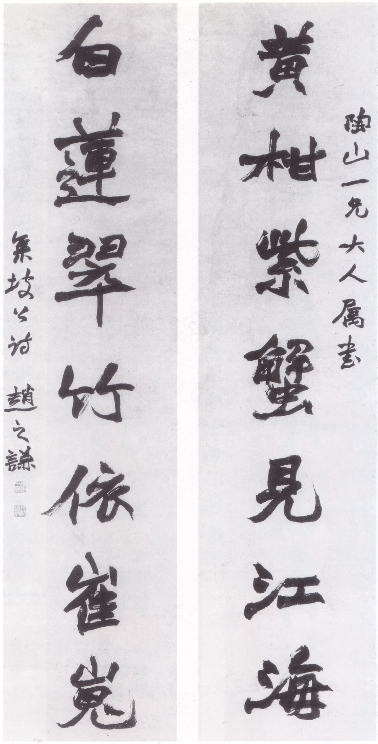 黃柑紫蟹見江海
陶山一兄大人属書
白蓮翠竹依崔嵬
集坡公詩 趙之謙